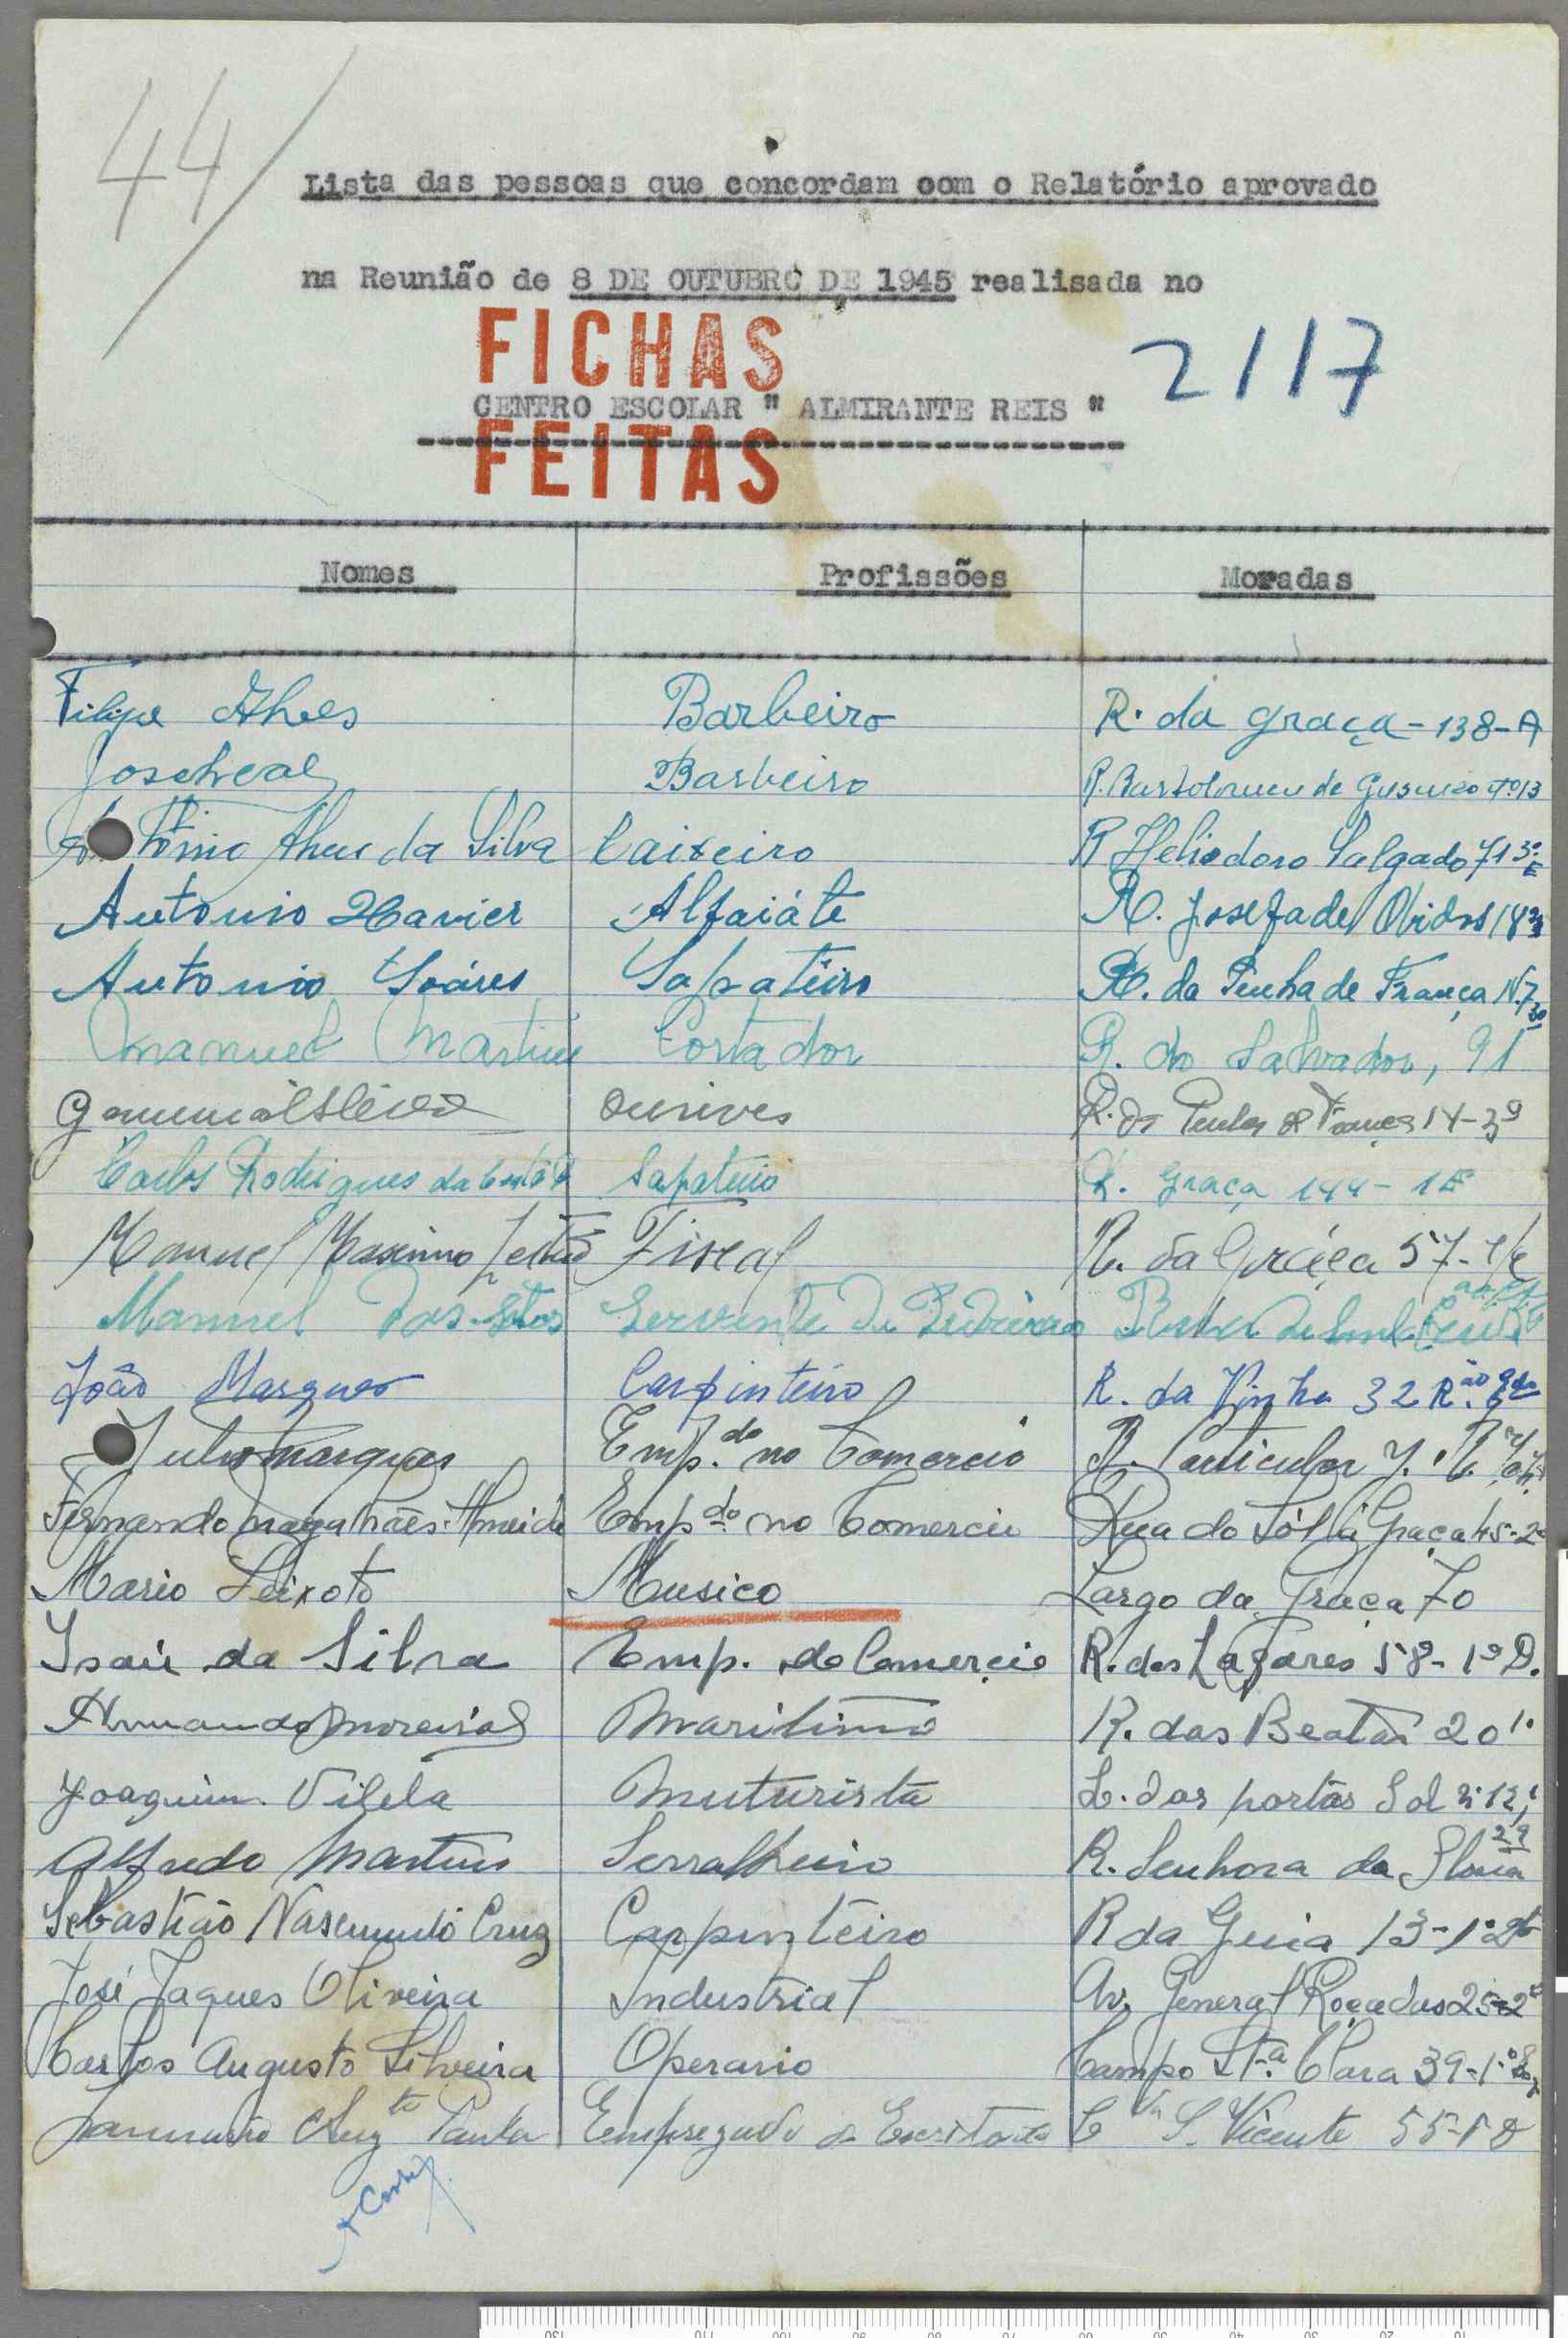 44/
Lista das pessoas que concordam com o Relatório aprovado
na Reunião de 8 DE OUTUBRO DE 1945 realisada no
FICHAS
2117
CENTRO ESCOLAR " ALMIRANTE REIS "
FEITAS
Nomes Profissões Moradas
Filipe Alves Barbeiro R. da graça - 138 - A
José Leal Barbeiro R. Bartolomeu de Gusmão nº 13
António Alves da Silva Caixeiro R Heliodoro Salgado 71 3º E
Antonio Xavier Alfaiáte R. Josefa de Obidos 18
Antonio Soáres Sapateiro R. da Penha de França N. 7
Manuel Martins Cortador R. do Salvador, 91
ourives R. da Penha de França 14-3º
Carlos Rodrigues da Costa Sapateiro R. Graça 144 - 1º
Manuel Maximo Leitão Fiscal R. da Gráça 57 - r/c
Manuel dos Stos Servente de Pedreiro
João Marques Carpinteiro R. da Vinha 32 R.
Julio Marques Emp.do no Comercio R. Particular
Fernando Magalhães Almeida Empdo no Comercio Rua do Sól à Graça 45-2º
Mario Peixoto Musico Largo da Graça 70
Isaú da Silva Emp. do Comercio R. dos Lagares 58 - 1º D.
Armando Moreira Maritimo R. das Beatas 20 1º
Joaquim Vilela Muturista L. das portas Sol nº 12,
Alfredo Martins Serralheiro R. Senhora da Gloria 29
Sebastião Nascimento Cruz Carpinteiro R da Guia 13-1º
José Jaques Oliveira Industrial Av. General Roçadas 25-2º
Carlos Augusto Silveira Operario Campo Sta. Clara 39-1º
Januario Augto Empregado de Escritorio S. Vicente 55-1º D